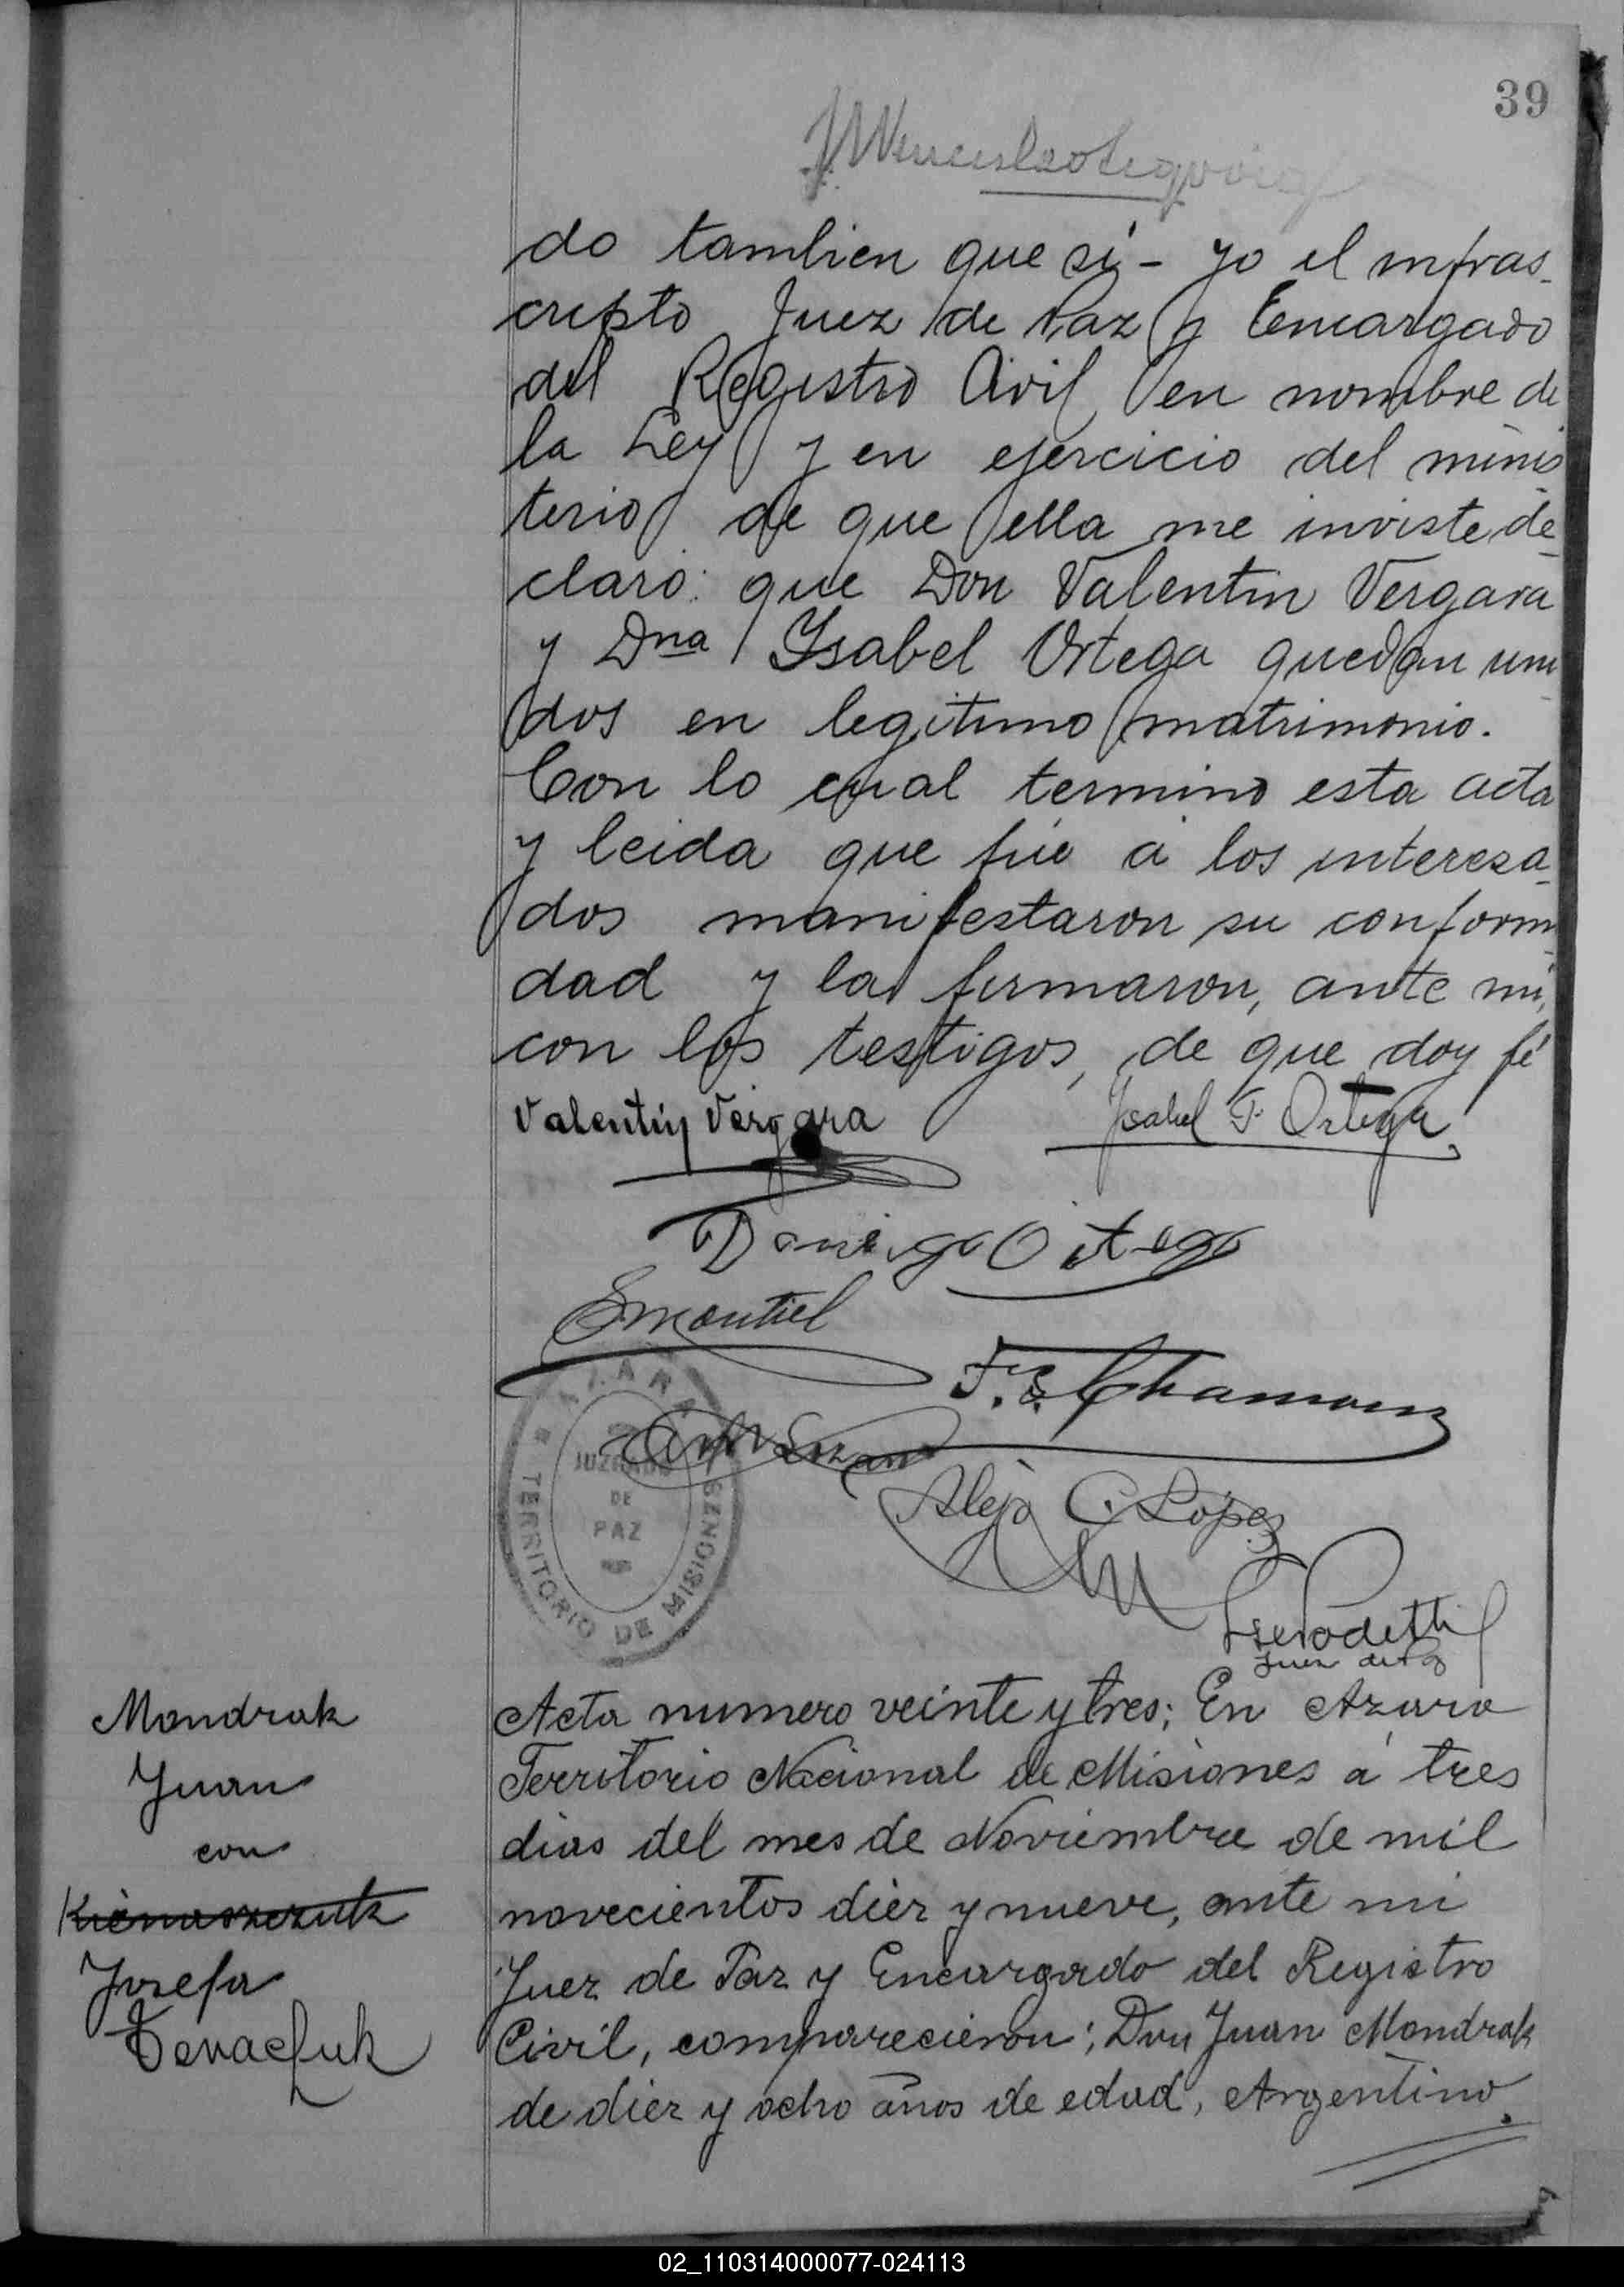 39
do tambien que si - yo el infras-
cripto Juez de Paz y Encargado
del Registro Civil, en nombre de
la Ley y en ejercicio del minis
terio de que ella me inviste de-
claro: que Don Valentin Vergara
y Dna Ysabel Ortega quedan uni
dos en legitimo matrimonio.
Con lo cual termino esta acta
y leida que fué á los interesa-
dos manifestaron su conformi
dad y la firmaron, ante mi,
con los testigos, de que doy fé
Valentin Vergara
Ysabel F. Ortega
Ortega
Montiel
F. E. Chamorro
JUZGADO
DE
PAZ
TERRITORIO DE MISIONES
Alejo C. Lopez
Juez de Paz
Mondrak
Juan
con
Kienaszezuk
Josefa
Acta numero veinte y tres; En Azara
Territorio Nacional de Misiones á tres
dias del mes de Noviembre de mil
novecientos diez y nueve, ante mi
Juez de Paz y Encargado del Registro
Civil, comparecieron; Don Juan Mondrak
de diez y ocho años de edad, Argentino.
02_110314000077-024113